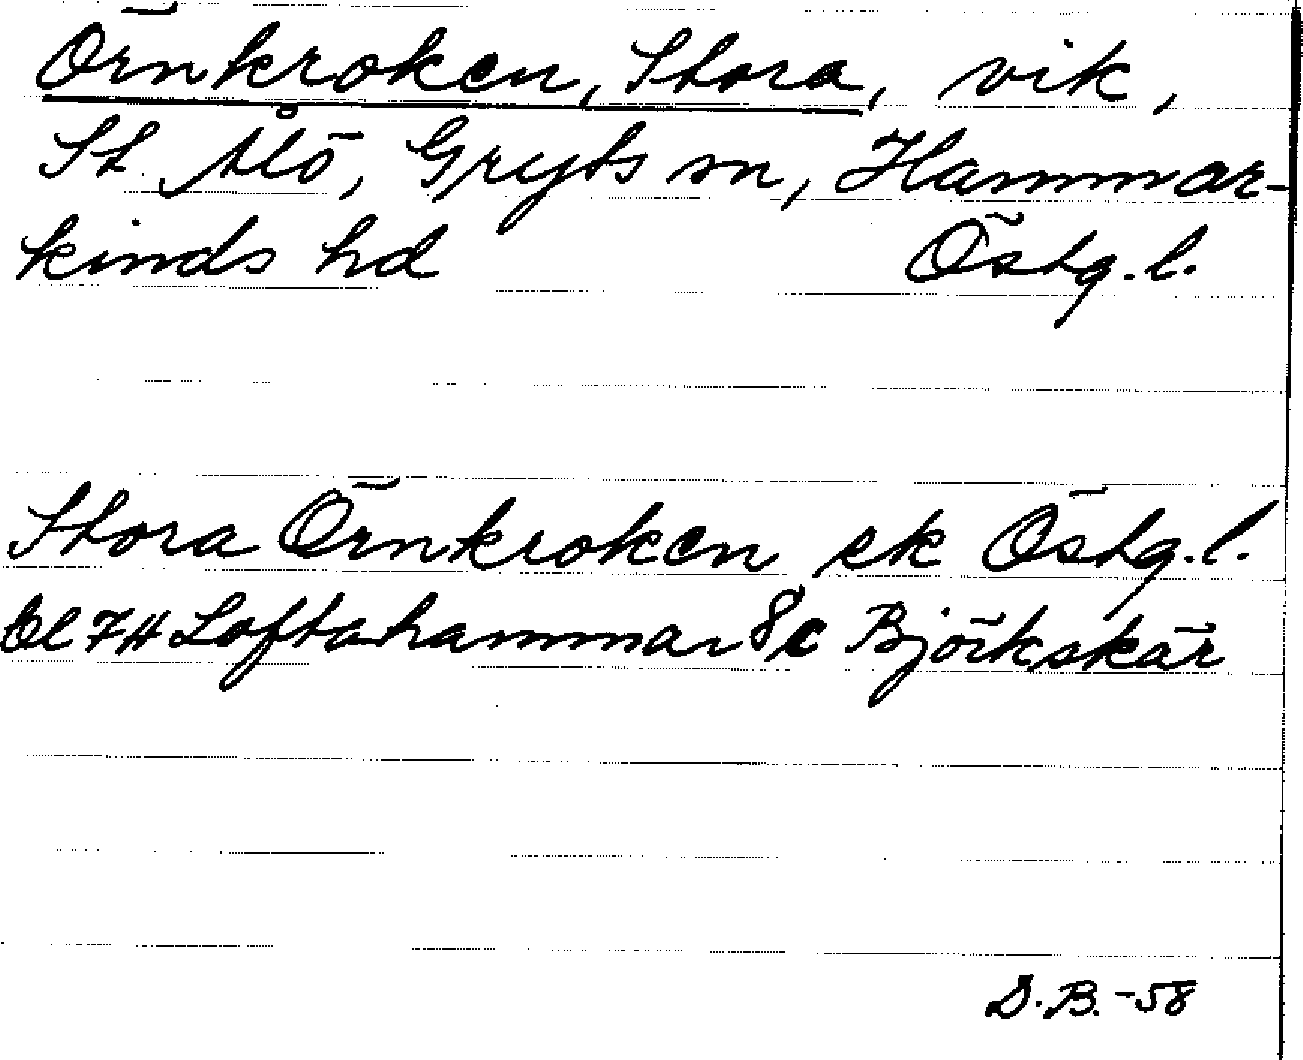 Örnkroken, Stora, vik,
St. Ålö, Gryts sn, Hammar-
kinds hd Östg. l.
Stora Örnkroken ek Östg. l.
bl 7H Loftahammar 8c Björkskär
D.B. -58